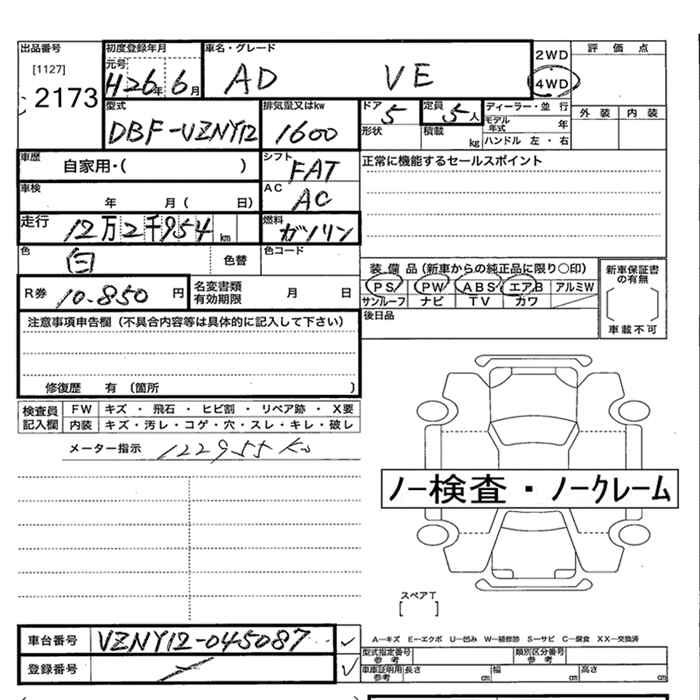 出品番号 初度登録年月 車名・グレード 2WD 評価点
[1127] 元号
2173 H26年 6月 AD VE 4WD
型式 排気量又はkw ドア 定員 ディーラー・並行 外装 内装
DBF-VZNY12 1600 5 5人 モデル年式 年
形状 積載 kg ハンドル 左・右
車歴 自家用・( ) シフト FAT 正常に機能するセールスポイント
車検 年 月 ( 日) AC AC
走行 12万2千954km 燃料 ガソリン
色 白 色替 色コード 装備品(新車からの純正品に限り○印) 新車保証書の有無
R券 10.850円 名変書類有効期限 月 日 PS PW ABS エアB アルミW
サンルーフ ナビ TV カワ 車載不可
注意事項申告欄(不具合内容等は具体的に記入して下さい) 後日品
修復歴 有 (箇所 )
検査員 FW キズ・飛石・ヒビ割・リペア跡・X要
記入欄 内装 キズ・汚レ・コゲ・穴・スレ・キレ・破レ
メーター指示 122955km
ノー検査・ノークレーム
スペアT
[ ]
車台番号 VZNY12-045087 A―キズ E―エクボ U―凹み W―補修跡 S―サビ C―腐食 XX―交換済
型式指定番号参考 類別区分番号参考
登録番号 車庫証明用参考 長さ cm 幅 cm 高さ cm